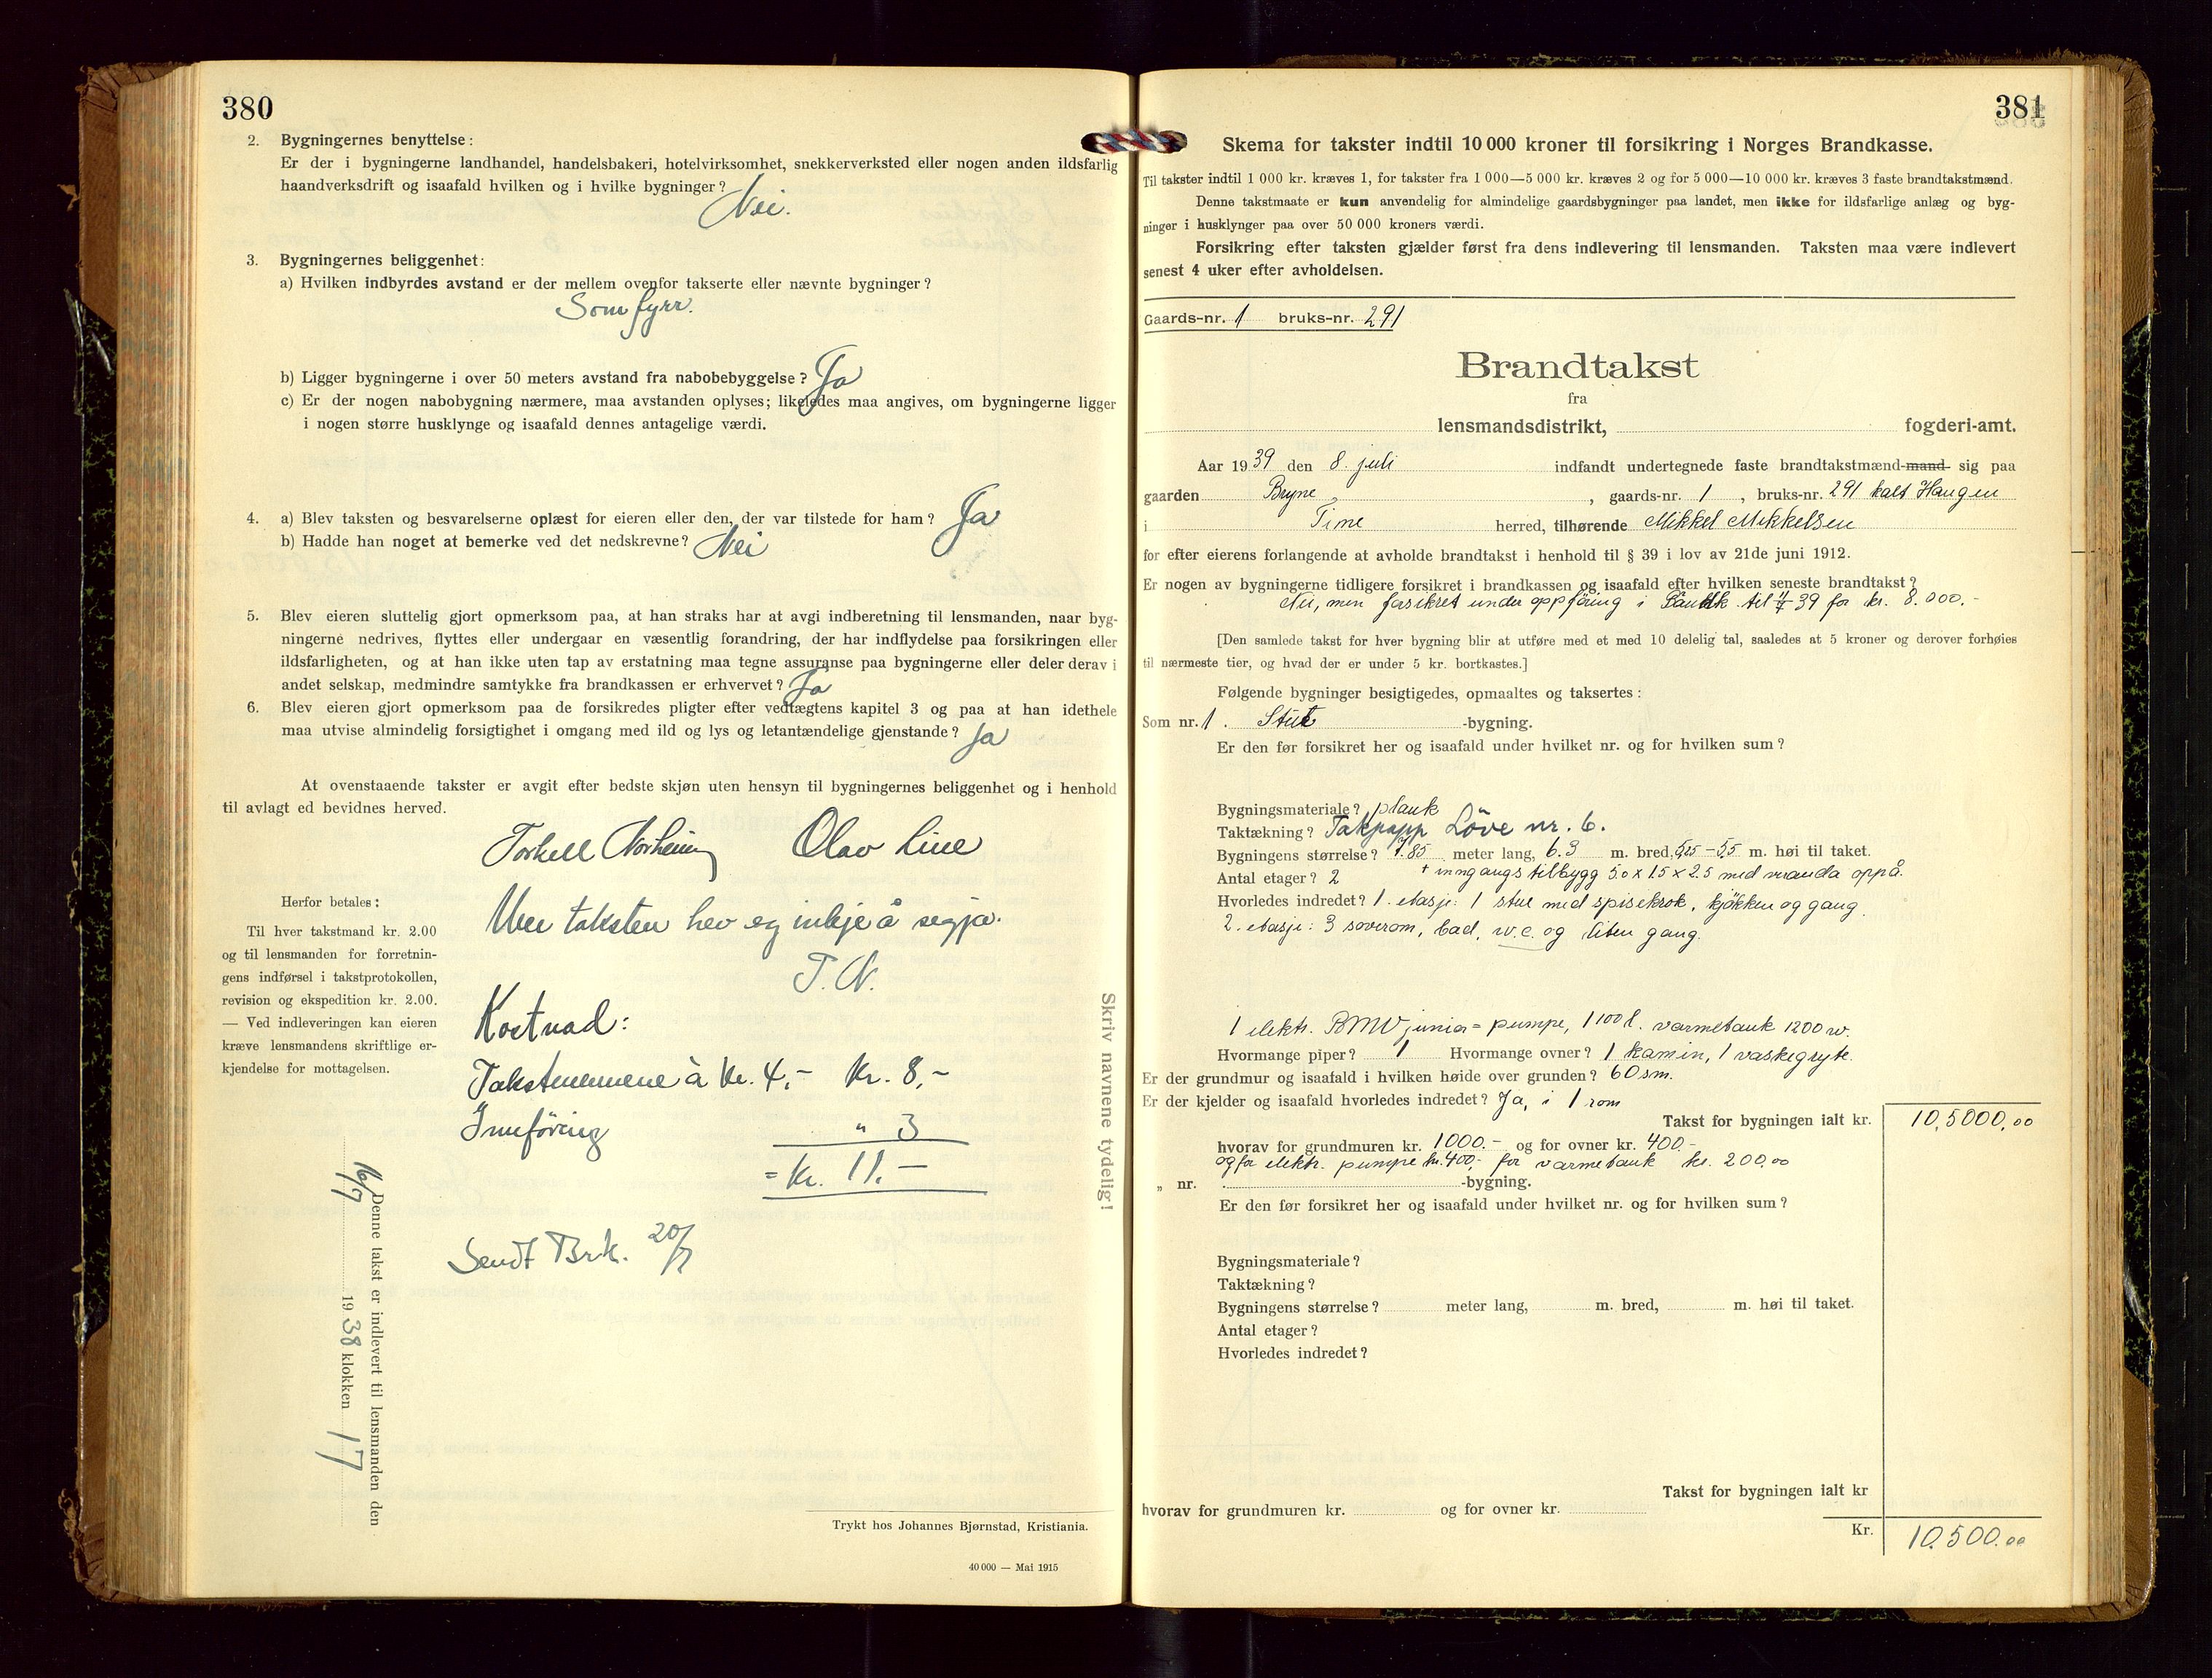 380
2. Bygningernes benyttelse:
Er der i bygningerne landhandel, handelsbakeri, hotelvirksomhet, snekkerverksted eller nogen anden ildsfarlig
haandverksdrift og isaafald hvilken og i hvilke bygninger? Nei.
3. Bygningernes beliggenhet:
a) Hvilken indbyrdes avstand er der mellem ovenfor takserte eller nævnte bygninger?
Som fyrr.
b) Ligger bygningerne i over 50 meters avstand fra nabobebyggelse? Ja
c) Er der nogen nabobygning nærmere, maa avstanden oplyses; likeledes maa angives, om bygningerne ligger
i nogen større husklynge og isaafald dennes antagelige værdi.
4. a) Blev taksten og besvarelserne oplæst for eieren eller den, der var tilstede for ham? Ja
b) Hadde han noget at bemerke ved det nedskrevne? Nei
5. Blev eieren sluttelig gjort opmerksom paa, at han straks har at avgi indberetning til lensmanden, naar byg-
ningerne nedrives, flyttes eller undergaar en væsentlig forandring, der har indflydelse paa forsikringen eller
ildsfarligheten, og at han ikke uten tap av erstatning maa tegne assuranse paa bygningerne eller deler derav i
andet selskap, medmindre samtykke fra brandkassen er erhvervet? Ja
6. Blev eieren gjort opmerksom paa de forsikredes pligter efter vedtægtens kapitel 3 og paa at han idethele
maa utvise almindelig forsigtighet i omgang med ild og lys og letantændelige gjenstande? Ja
At ovenstaaende takster er avgit efter bedste skjøn uten hensyn til bygningernes beliggenhet og i henhold
til avlagt ed bevidnes herved.
Torkell Norheim Olav Line
Um taksten hev eg inkje å segja.
T. N.
Herfor betales:
Til hver takstmand kr. 2.00
og til lensmanden for forretnin-
gens indførsel i takstprotokollen,
revision og ekspedition kr. 2.00.
— Ved indleveringen kan eieren
kræve lensmandens skriftlige er-
kjendelse for mottagelsen.
Kostnad:
Takstmennene à kr. 4,- kr. 8,-
Innföring " 3
= kr. 11.-
Sendt Brk. 20/7
Denne takst er indlevert til lensmanden den
16/7 1938 klokken 17
Skriv navnene tydelig!
Trykt hos Johannes Bjørnstad, Kristiania.
40 000 — Mai 1915
381
Skema for takster indtil 10 000 kroner til forsikring i Norges Brandkasse.
Til takster indtil 1 000 kr. kræves 1, for takster fra 1 000—5 000 kr. kræves 2 og for 5 000—10 000 kr. kræves 3 faste brandtakstmænd.
Denne takstmaate er kun anvendelig for almindelige gaardsbygninger paa landet, men ikke for ildsfarlige anlæg og byg-
ninger i husklynger paa over 50 000 kroners værdi.
Forsikring efter taksten gjælder først fra dens indlevering til lensmanden. Taksten maa være indlevert
senest 4 uker efter avholdelsen.
Gaards-nr. 1 bruks-nr. 291
Brandtakst
fra
lensmandsdistrikt, fogderi-amt.
Aar 1939 den 8. juli indfandt undertegnede faste brandtakstmænd-mand sig paa
gaarden Bryne, gaards-nr. 1, bruks-nr. 291 kalt Haugen
i Time herred, tilhørende Mikkel Mikkelsen
for efter eierens forlangende at avholde brandtakst i henhold til § 39 i lov av 21de juni 1912.
Er nogen av bygningerne tidligere forsikret i brandkassen og isaafald efter hvilken seneste brandtakst?
Nei, men forsikret under oppföring i til 39 for kr. 8.000.-
[Den samlede takst for hver bygning blir at utføre med et med 10 delelig tal, saaledes at 5 kroner og derover forhøies
til nærmeste tier, og hvad der er under 5 kr. bortkastes.]
Følgende bygninger besigtigedes, opmaaltes og taksertes:
Som nr. 1. -bygning.
Er den før forsikret her og isaafald under hvilket nr. og for hvilken sum?
Bygningsmateriale? plank
Taktækning? Takpapp Löve nr. 6.
Bygningens størrelse? 7.85 meter lang, 6.3 m. bred, 5,25 - 5,5 m. høi til taket.
Antal etager? 2 + inngangstilbygg 5.0 x 1.5 x 2.5 med veranda oppå.
Hvorledes indredet? 1. etasje: 1 stue med spisekrok, kjökken og gang.
2. etasje: 3 soverom, bad, w.c. og liten gang.
1 elektr. BMV junior = pumpe, 1 100 l. varmetank 1200 w.
Hvormange piper? 1 Hvormange ovner? 1 kamin, 1 vaskegryte.
Er der grundmur og isaafald i hvilken høide over grunden? 60 sm.
Er der kjelder og isaafald hvorledes indredet? Ja, i 1 rom
Takst for bygningen ialt kr. 10,5000,00
hvorav for grundmuren kr. 1000.- og for ovner kr. 400-
og for elektr. pumpe kr. 400,- for varmetank kr. 200.00
„ nr. -bygning.
Er den før forsikret her og isaafald under hvilket nr. og for hvilken sum?
Bygningsmateriale?
Taktækning?
Bygningens størrelse? meter lang, m. bred, m. høi til taket.
Antal etager?
Hvorledes indredet?
Takst for bygningen ialt kr
hvorav for grundmuren kr. og for ovner kr.
Kr. 10.500.00